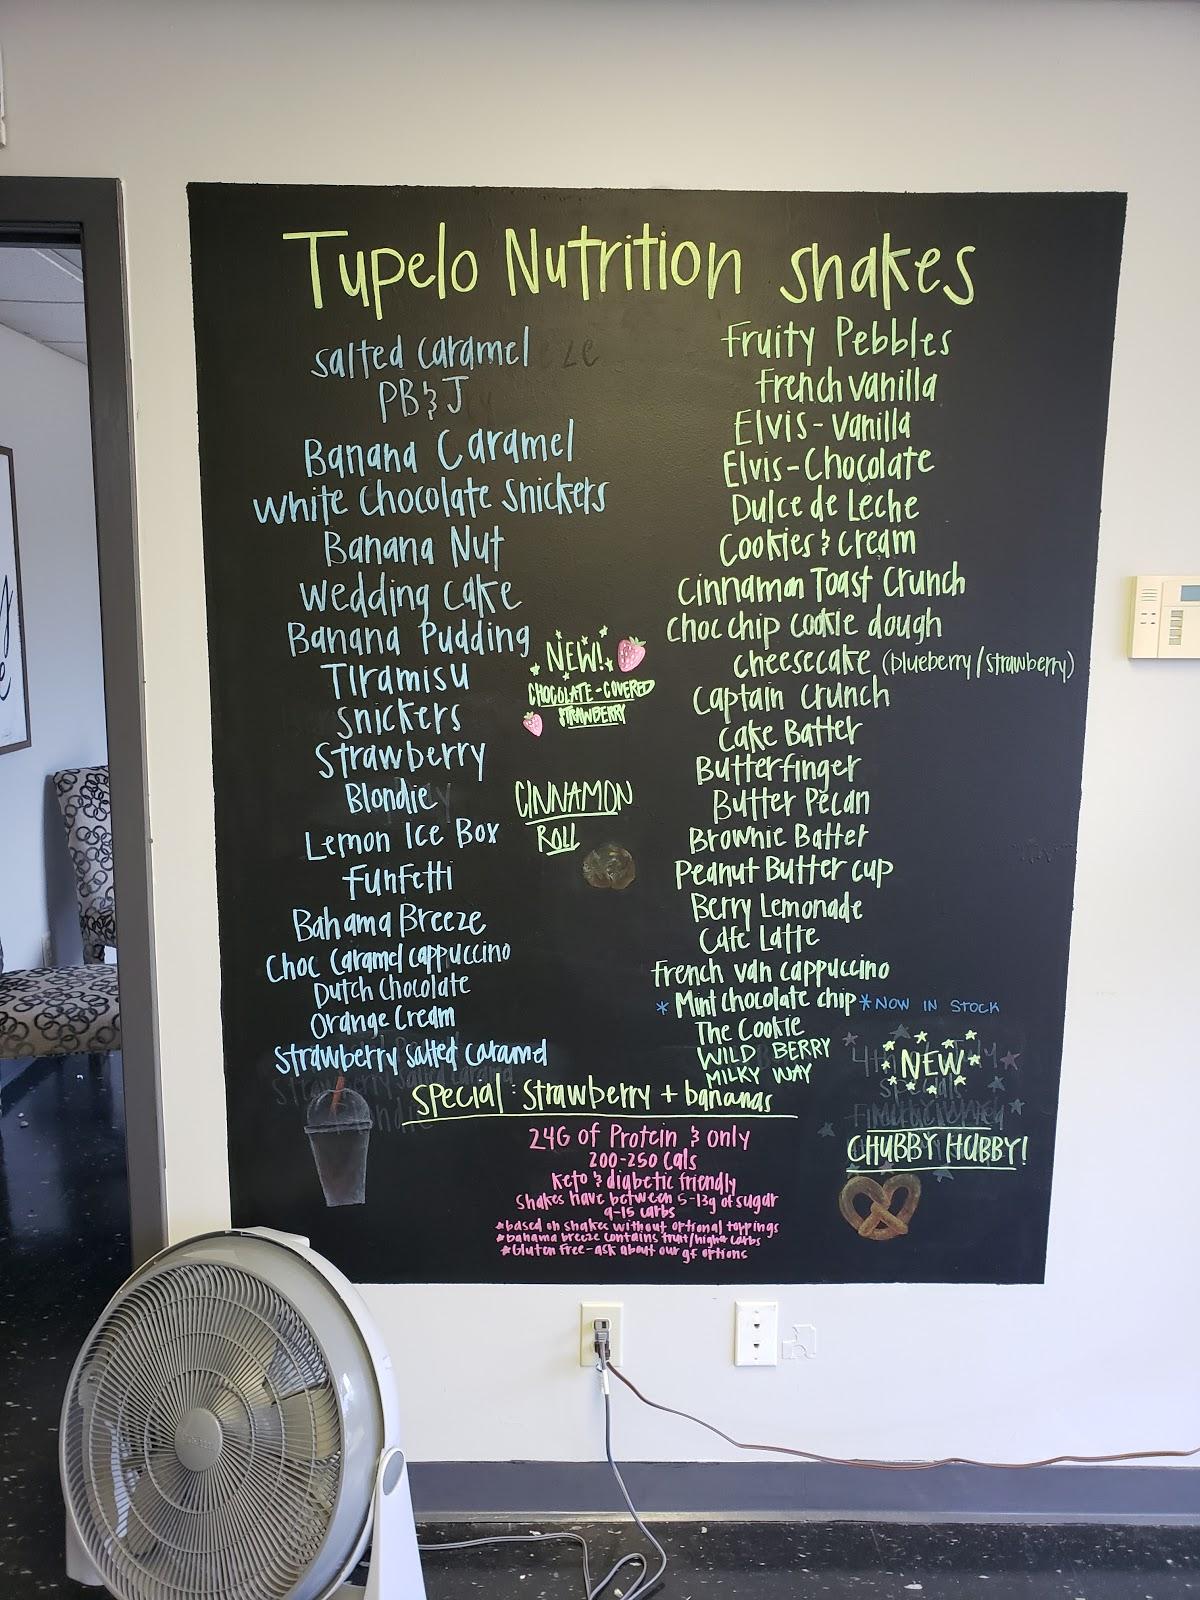 Tupelo Nutrition shakes
salted caramel
PB&J
Banana Caramel
White Chocolate Snickers
Banana Nut
Wedding Cake
Banana Pudding
Tiramisu
Snickers
Strawberry
Blondie
Lemon Ice Box
Funfetti
Bahama Breeze
Choc Caramel cappuccino
Dutch Chocolate
Orange Cream
Strawberry Salted Caramel
NEW!
CHOCOLATE-COVERED
STRAWBERRY
CINNAMON
ROLL
Fruity Pebbles
French vanilla
Elvis-Vanilla
Elvis-Chocolate
Dulce de Leche
Cookies & cream
Cinnamon Toast Crunch
Choc chip cookie dough
cheesecake (blueberry/strawberry)
Captain Crunch
Cake Batter
Butterfinger
Butter Pecan
Brownie Batter
Peanut Butter cup
Berry Lemonade
Cafe Latte
French van cappuccino
*Mint chocolate chip* NOW IN STOCK
The Cookie
WILD BERRY
MILKY WAY
Special: Strawberry + bananas
NEW
CHUBBY HUBBY!
24G of Protein & only
200-250 Cals
Keto & diabetic friendly
Shakes have between 5-13g of sugar
9-15 carbs
*based on shakes without optional toppings
*bahama breeze contains fruit/higher carbs
*Gluten Free-ask about our gf options